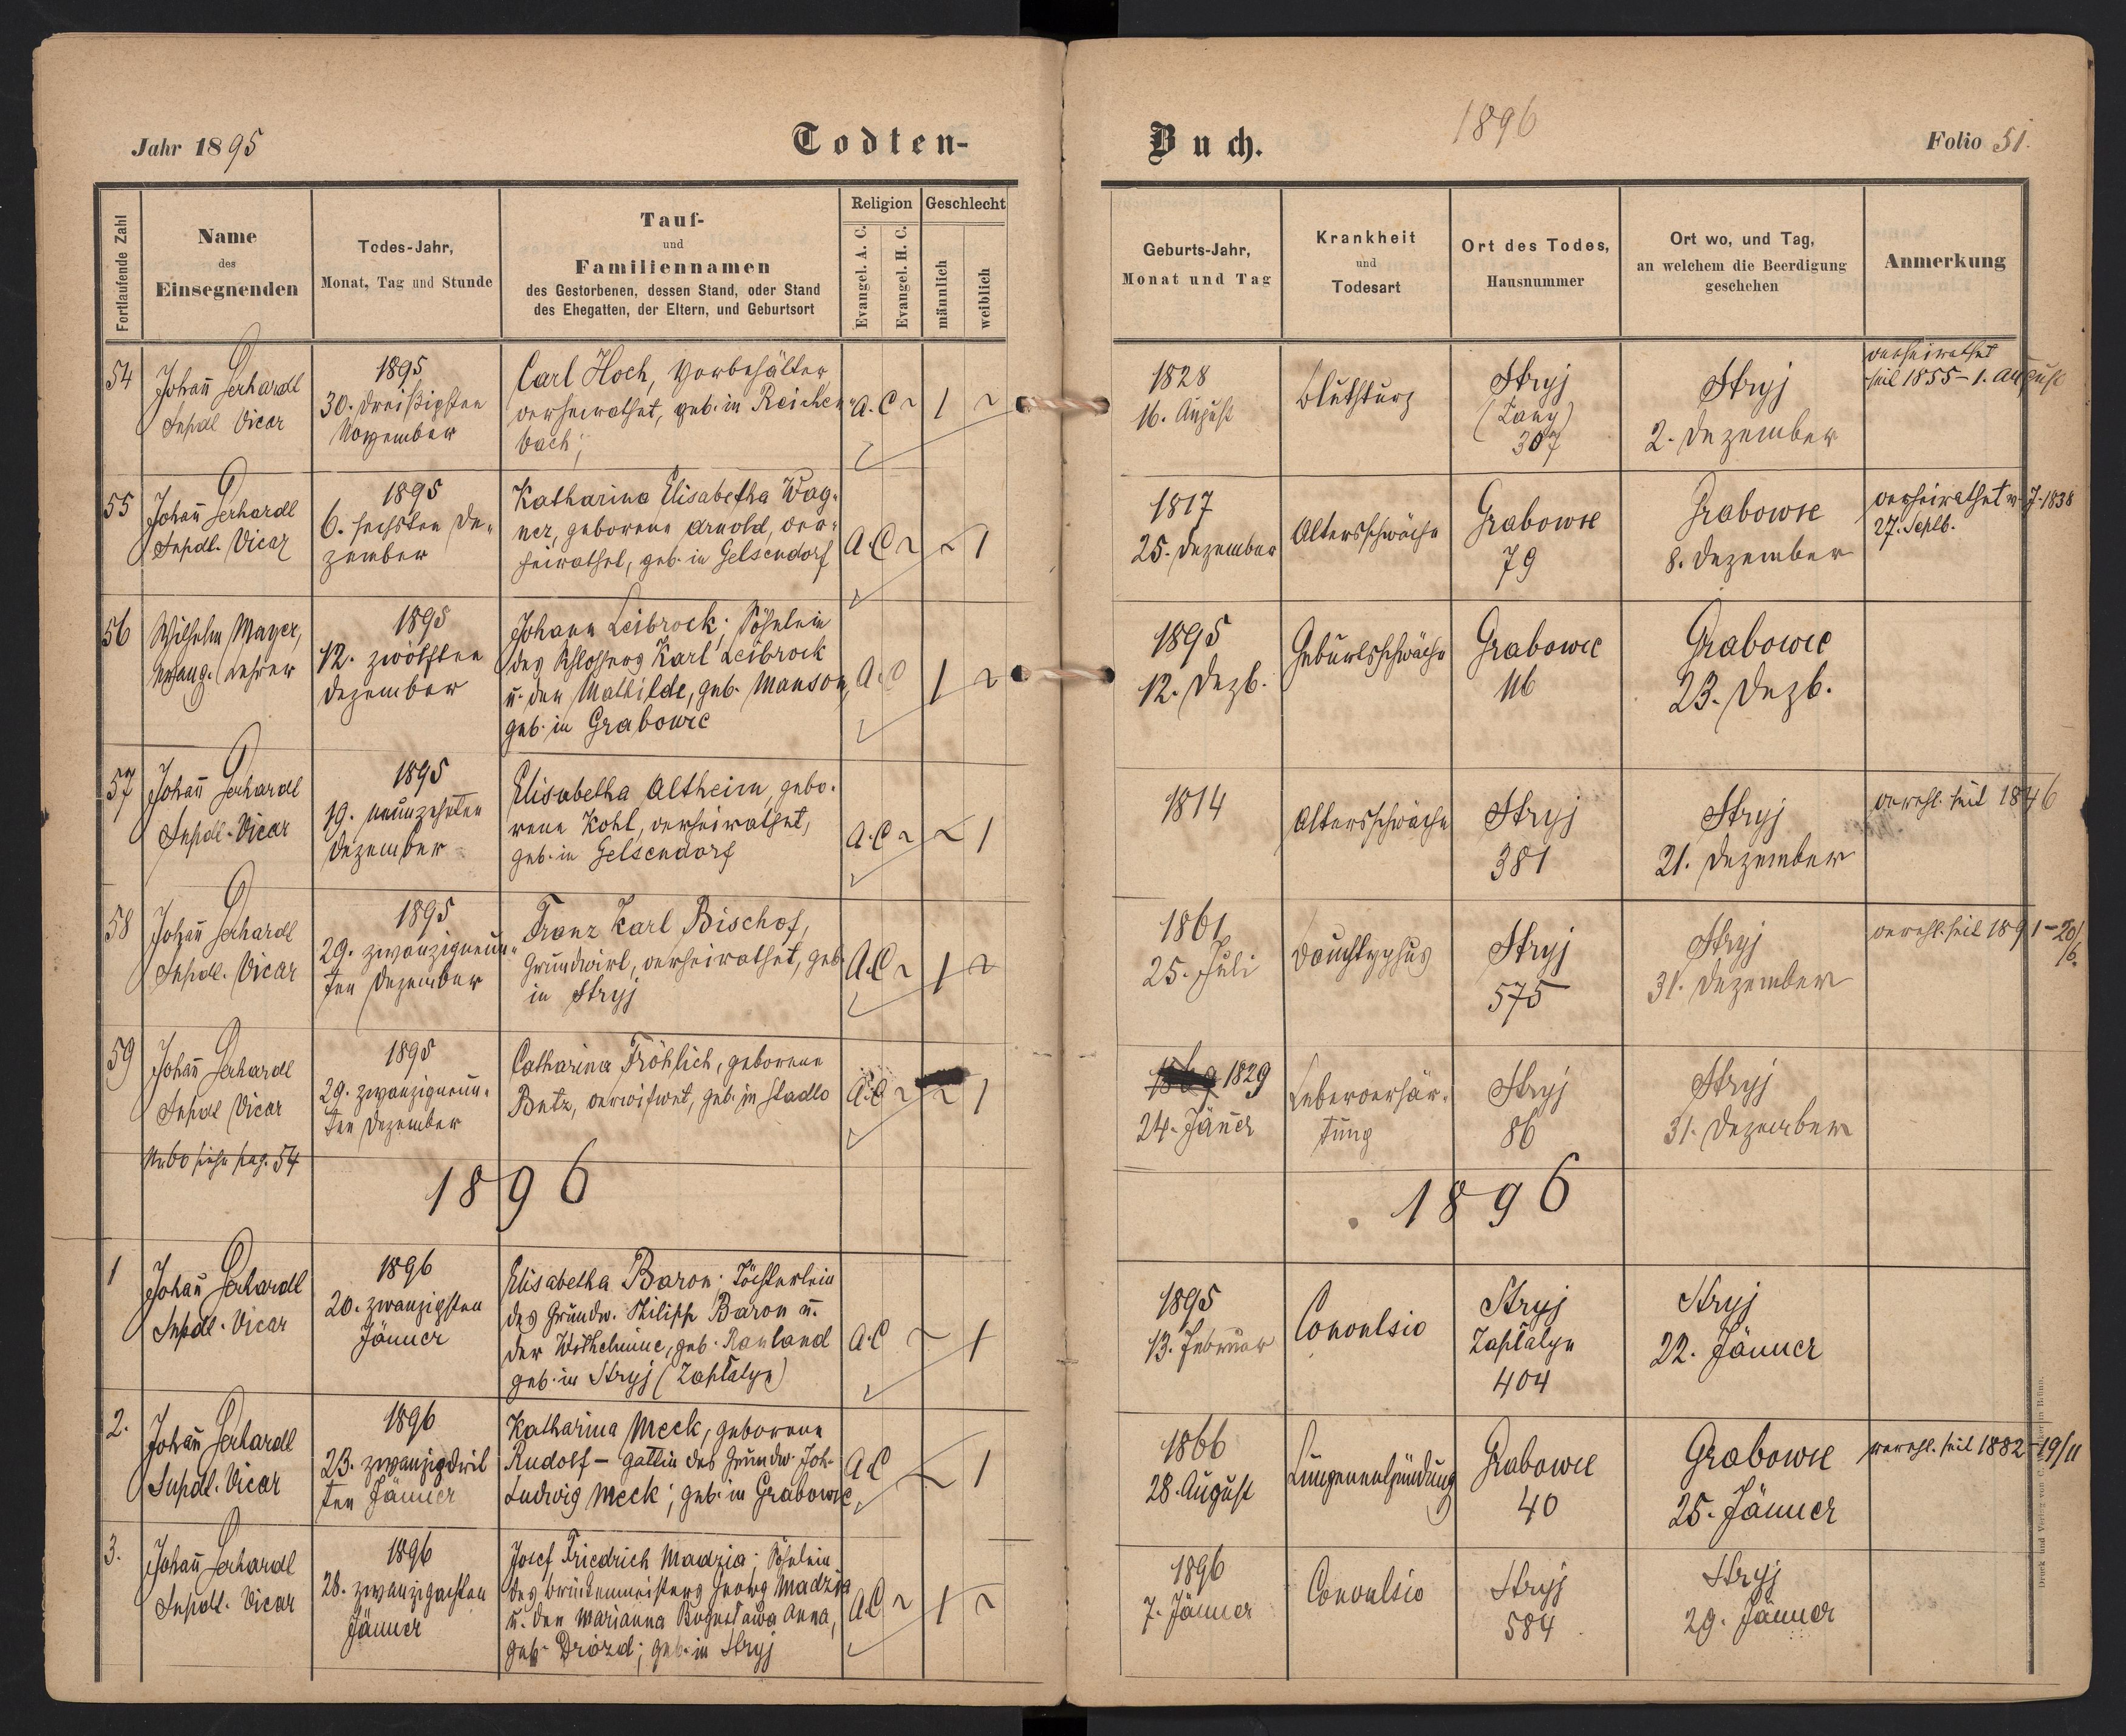 Jahr 1895
Todten-
Fortlaufende Zahl
Name
des
Einsegnenden
Todes-Jahr,
Monat, Tag und Stunde
Tauf-
und
Familiennamen
des Gestorbenen, dessen Stand, oder Stand
des Ehegatten, der Eltern, und Geburtsort
Religion
Evangel. A. C.
Evangel. H. C.
Geschlecht
männlich
weiblich
54
Johañ Gerhardt
Supdl Vicar
1895
30. dreißigsten
November
Carl Hoch, Vorbehälter
verheirathet, geb. in Reichen-
bach;
A. C ~ 1 ~
55
Johañ Gerhardt
Supdl. Vicar
1895
6. sechsten De-
zember
Katharina Elisabetha Wag-
ner, geborene Arnold, ver-
heirathet, geb. in Gelsendorf
A. C ~ ~ 1
56
Wilhelm Mayer,
evang. Lehrer
1895
12. zwölften
Dezember
Johann Leibrock; Söhnlein
des Schlossers Karl Leibrock
u. der Mathilde, geb. Manson,
geb. in Grabowce
A. C 1 ~
57
Johañ Gerhardt
Supdl. Vicar
1895
19. neunzehnten
Dezember
Elisabetha Altheim, gebo-
rene Kohl, verheirathet,
geb. in Gelsendorf
A. C ~ ~ 1
58
Johañ Gerhardt
Supdl. Vicar
1895
29. zwanzigneun-
ten Dezember
Franz Karl Bischof,
Grundwirt, verheirathet, geb.
in Stryj
A. C ~ 1 ~
59
Johañ Gerhardt
Supdl Vicar
1895
29. zwanzigneun-
ten Dezember
Catharina Fröhlich, geborene
Butz, verwitwet, geb. in Stadlo
A. C ~ ~ 1
Nr. 60 siehe pag. 54
1896
1
Johañ Gerhardt
Supdl. Vicar
1896
20. zwanzigsten
Jänner
Elisabetha Baron; Töchterlein
des Grundw. Philipp Baron u.
der Wilhelmine, geb. Rauland
geb. in Stryj (Zapłatyn)
A. C ~ 1
2.
Johañ Gerhardt
Supdl. Vicar
1896
23. zwanzigdrit
ten Jänner
Katharina Meck, geborene
Rudolf – Gattin des Grundw. Joh.
Ludwig Meck; geb. in Grabowce,
A. C ~ 1
3.
Johañ Gerhardt
Supdl. Vicar
1896
28. zwanzigachten
Jänner
Josef Friedrich Madzia; Söhnlein
des Brückenmeisters Georg Madzia
u. der Marianna Bogusława Anna,
geb. Drozd; geb. in Stryj
A. C ~ 1 ~
Buch.
1896
Folio 51.
Geburts-Jahr,
Monat und Tag
Krankheit
und
Todesart
Ort des Todes,
Hausnummer
Ort wo, und Tag,
an welchem die Beerdigung
geschehen
Anmerkung
1828
16. August
Blutsturz
Stryj
(Lany)
307
Stryj
2. Dezember
verheirathet
seit 1855 – 1. August
1817
25. Dezember
Altersschwäche
Grabowce
79
Grabowce
8. Dezember
verheirathet v. J. 1838
27. Septb.
1895
12. Dezb.
Geburtsschwäche
Grabowce
116
Grabowce
23. Dezb.
1814
Altersschwäche
Stryj
381
Stryj
21. Dezember
verehl. seit 1846
1861
25. Juli
Bauchtyphus
Stryj
575
Stryj
31. Dezember
verehl. seit 1891 – 20/
6.
1829
24. Jäñer
Leberverhär-
tung
Stryj
86
Stryj
31. Dezember
1896
1895
13. Februar
Convulsio
Stryj
Zapłatyn
404
Stryj
22. Jänner
1866
28. August
Lungenentzündung
Grabowce
40
Grabowce
25. Jänner
verehl. seit 1882 – 19/11
1896
7. Jänner
Convulsio
Stryj
584
Stryj
29. Jänner